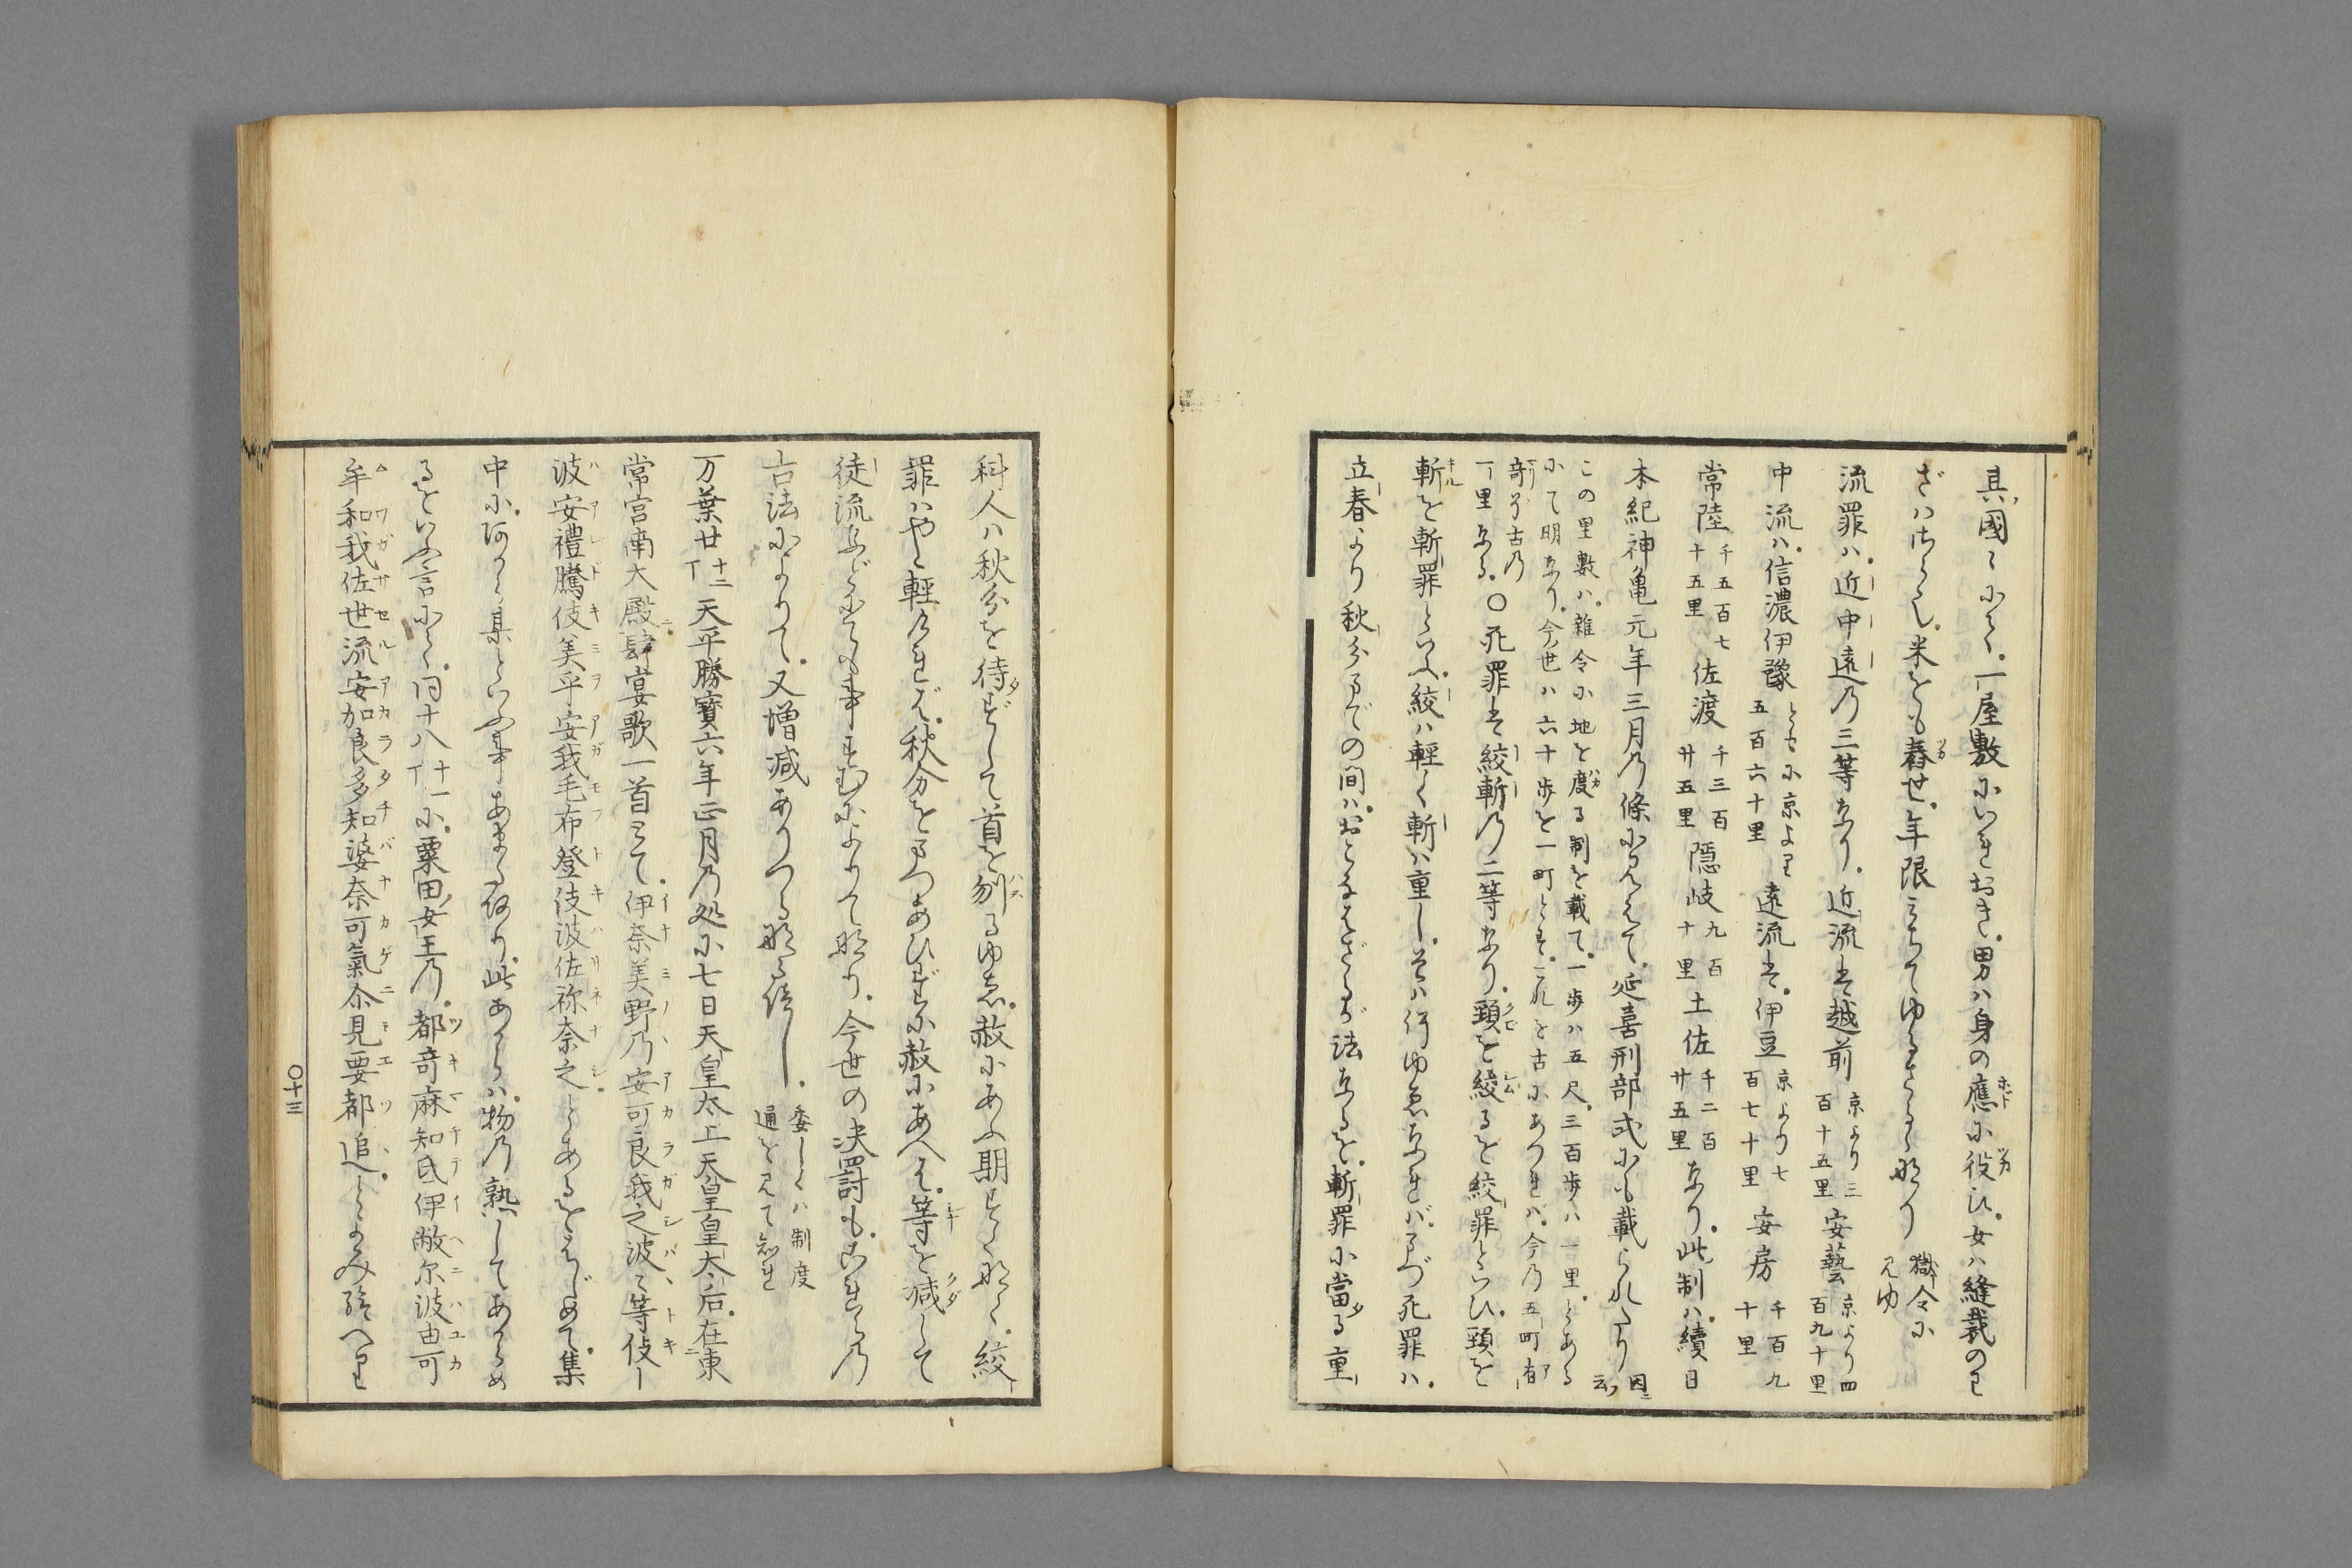 其國〻にて。一屋敷にいれおき。男ハ身の應に役ひ。女ハ縫裁のわ
ざハさらも。米をも舂せ。年限みちてゆるさるゝ也 獄令に見ゆ
流罪ハ。近中遠乃三等あり。近流は越前 京より三百十五里 安藝 京より四百九十里
中流ハ。信濃伊豫 ともに京より五百六十里 遠流は。伊豆 京より七百七十里 安房 千百九十里
常陸 千五百七十五里 佐渡 千三百廿五里 隠岐 九百十里 土佐 千二百廿五里 なり。此制ハ。續日
本紀神亀元年三月乃條に見えて。延喜刑部式にも載られたり 因ニ云フ
この里數ハ。雜令に地を度る制を載て。一歩ハ五尺。三百歩ハ一里。とある
にて明なり。今世ハ六十歩を一町とす。これを古にあつれバ。今乃五町有
奇が古乃
一里なる。〇死罪は絞斬乃二等あり。頸を絞るを絞罪といひ。頸を
斬を斬罪といふ。絞ハ輕く斬ハ重し。そハ何ゆゑなれバ。まづ死罪ハ。
立春より秋分までの間ハ。おこなはざるが法なるを。斬罪に當る重
科人ハ秋分を待ずして首を刎るゆゑ。赦にあふ期すくな也。絞
罪ハやゝ輕ければ。秋分をまつあひだに赦にあへば。等を減して
徒流などになる事もあるによりて也。今世の決罸も。これらの
古法によりて。又増減ありつる也けらし。 委しくハ制度通を見て知れ
万葉廿 十二丁 天平勝寶六年正月乃処に七日天皇太上天皇皇大后。在東
常宮南大殿肆宴歌一首とて。伊奈美野乃安可良我之波〻等伎
波安禮騰伎美乎安我毛布登伎波佐祢奈之とあるをはじめて。集
中に。阿から某といふ事あまた有り。此あからハ。物乃熟してあからめ
るをいふ言にて。同十八 十一丁 に。粟田女王乃。都奇麻知氐伊敝尓波由可
牟和我佐世流安加良多知婆奈可氣尓見要都追。とよみ給へれ
〇十三